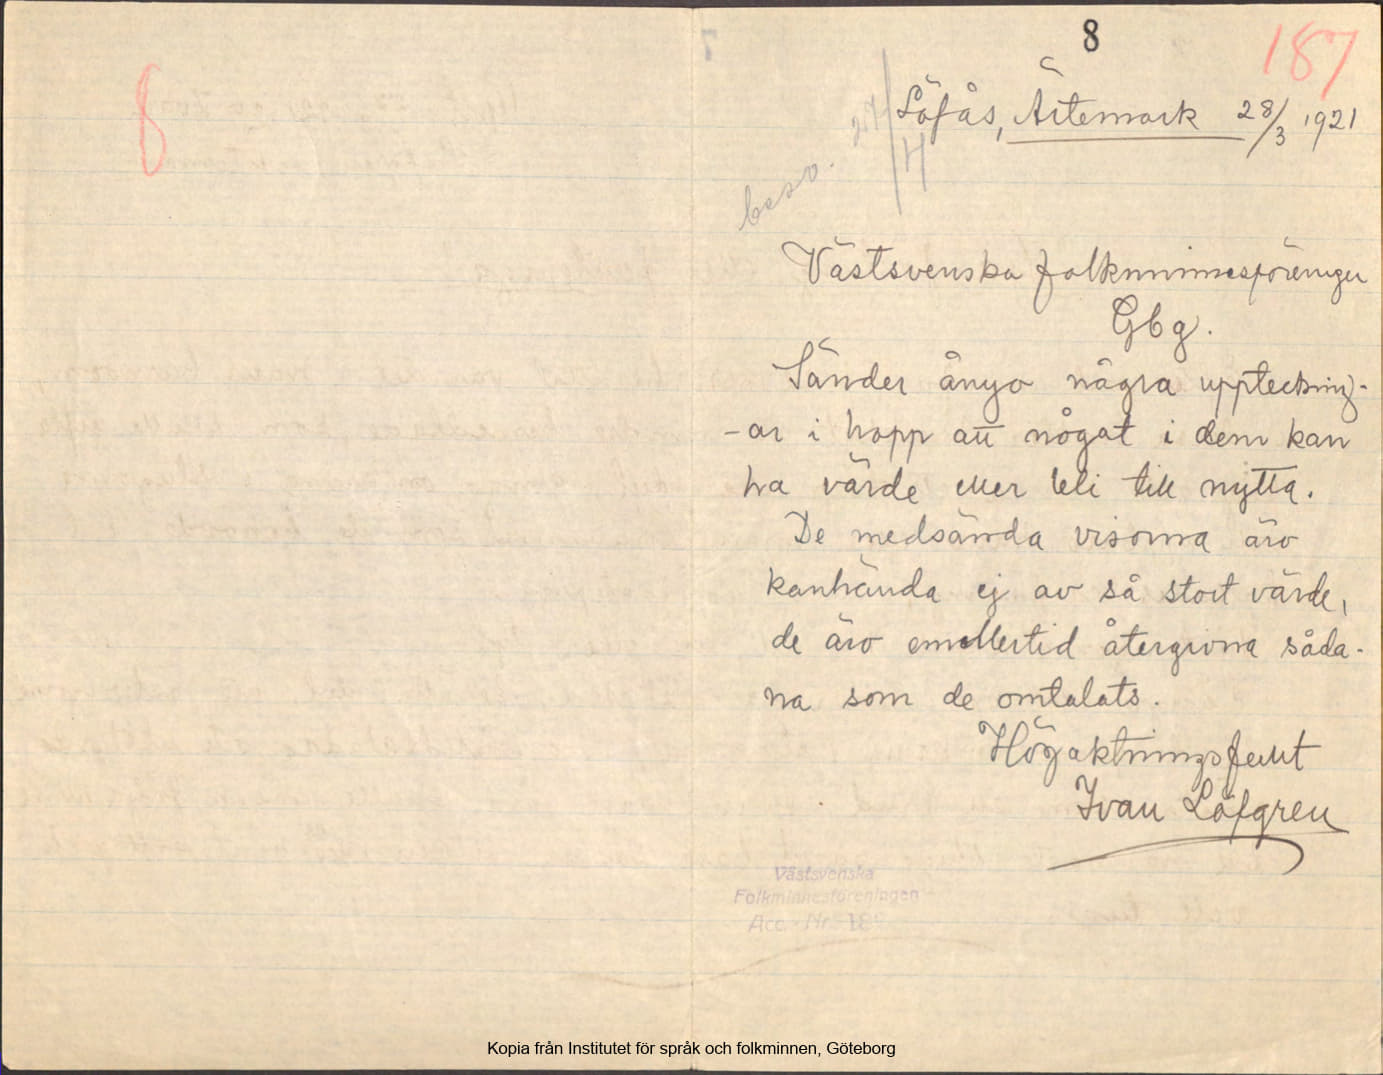 8
187
8
Löfås, Ärtemark 28/3 1921
besv. 27/4
Västsvenska folkminnesföreningen
Gbg.
Sänder ånyo några uppteckning-
-ar i hopp att något i dem kan
ha värde eller bli till nytta.
De medsända visorna äro
kanhända ej av så stort värde,
de äro emellertid återgivna såda-
na som de omtalats.
Högaktningsfullt
Ivan Löfgren
Västsvenska
Folkminnesföreningen
Acc. - Nr.
Kopia från Institutet för språk och folkminnen, Göteborg